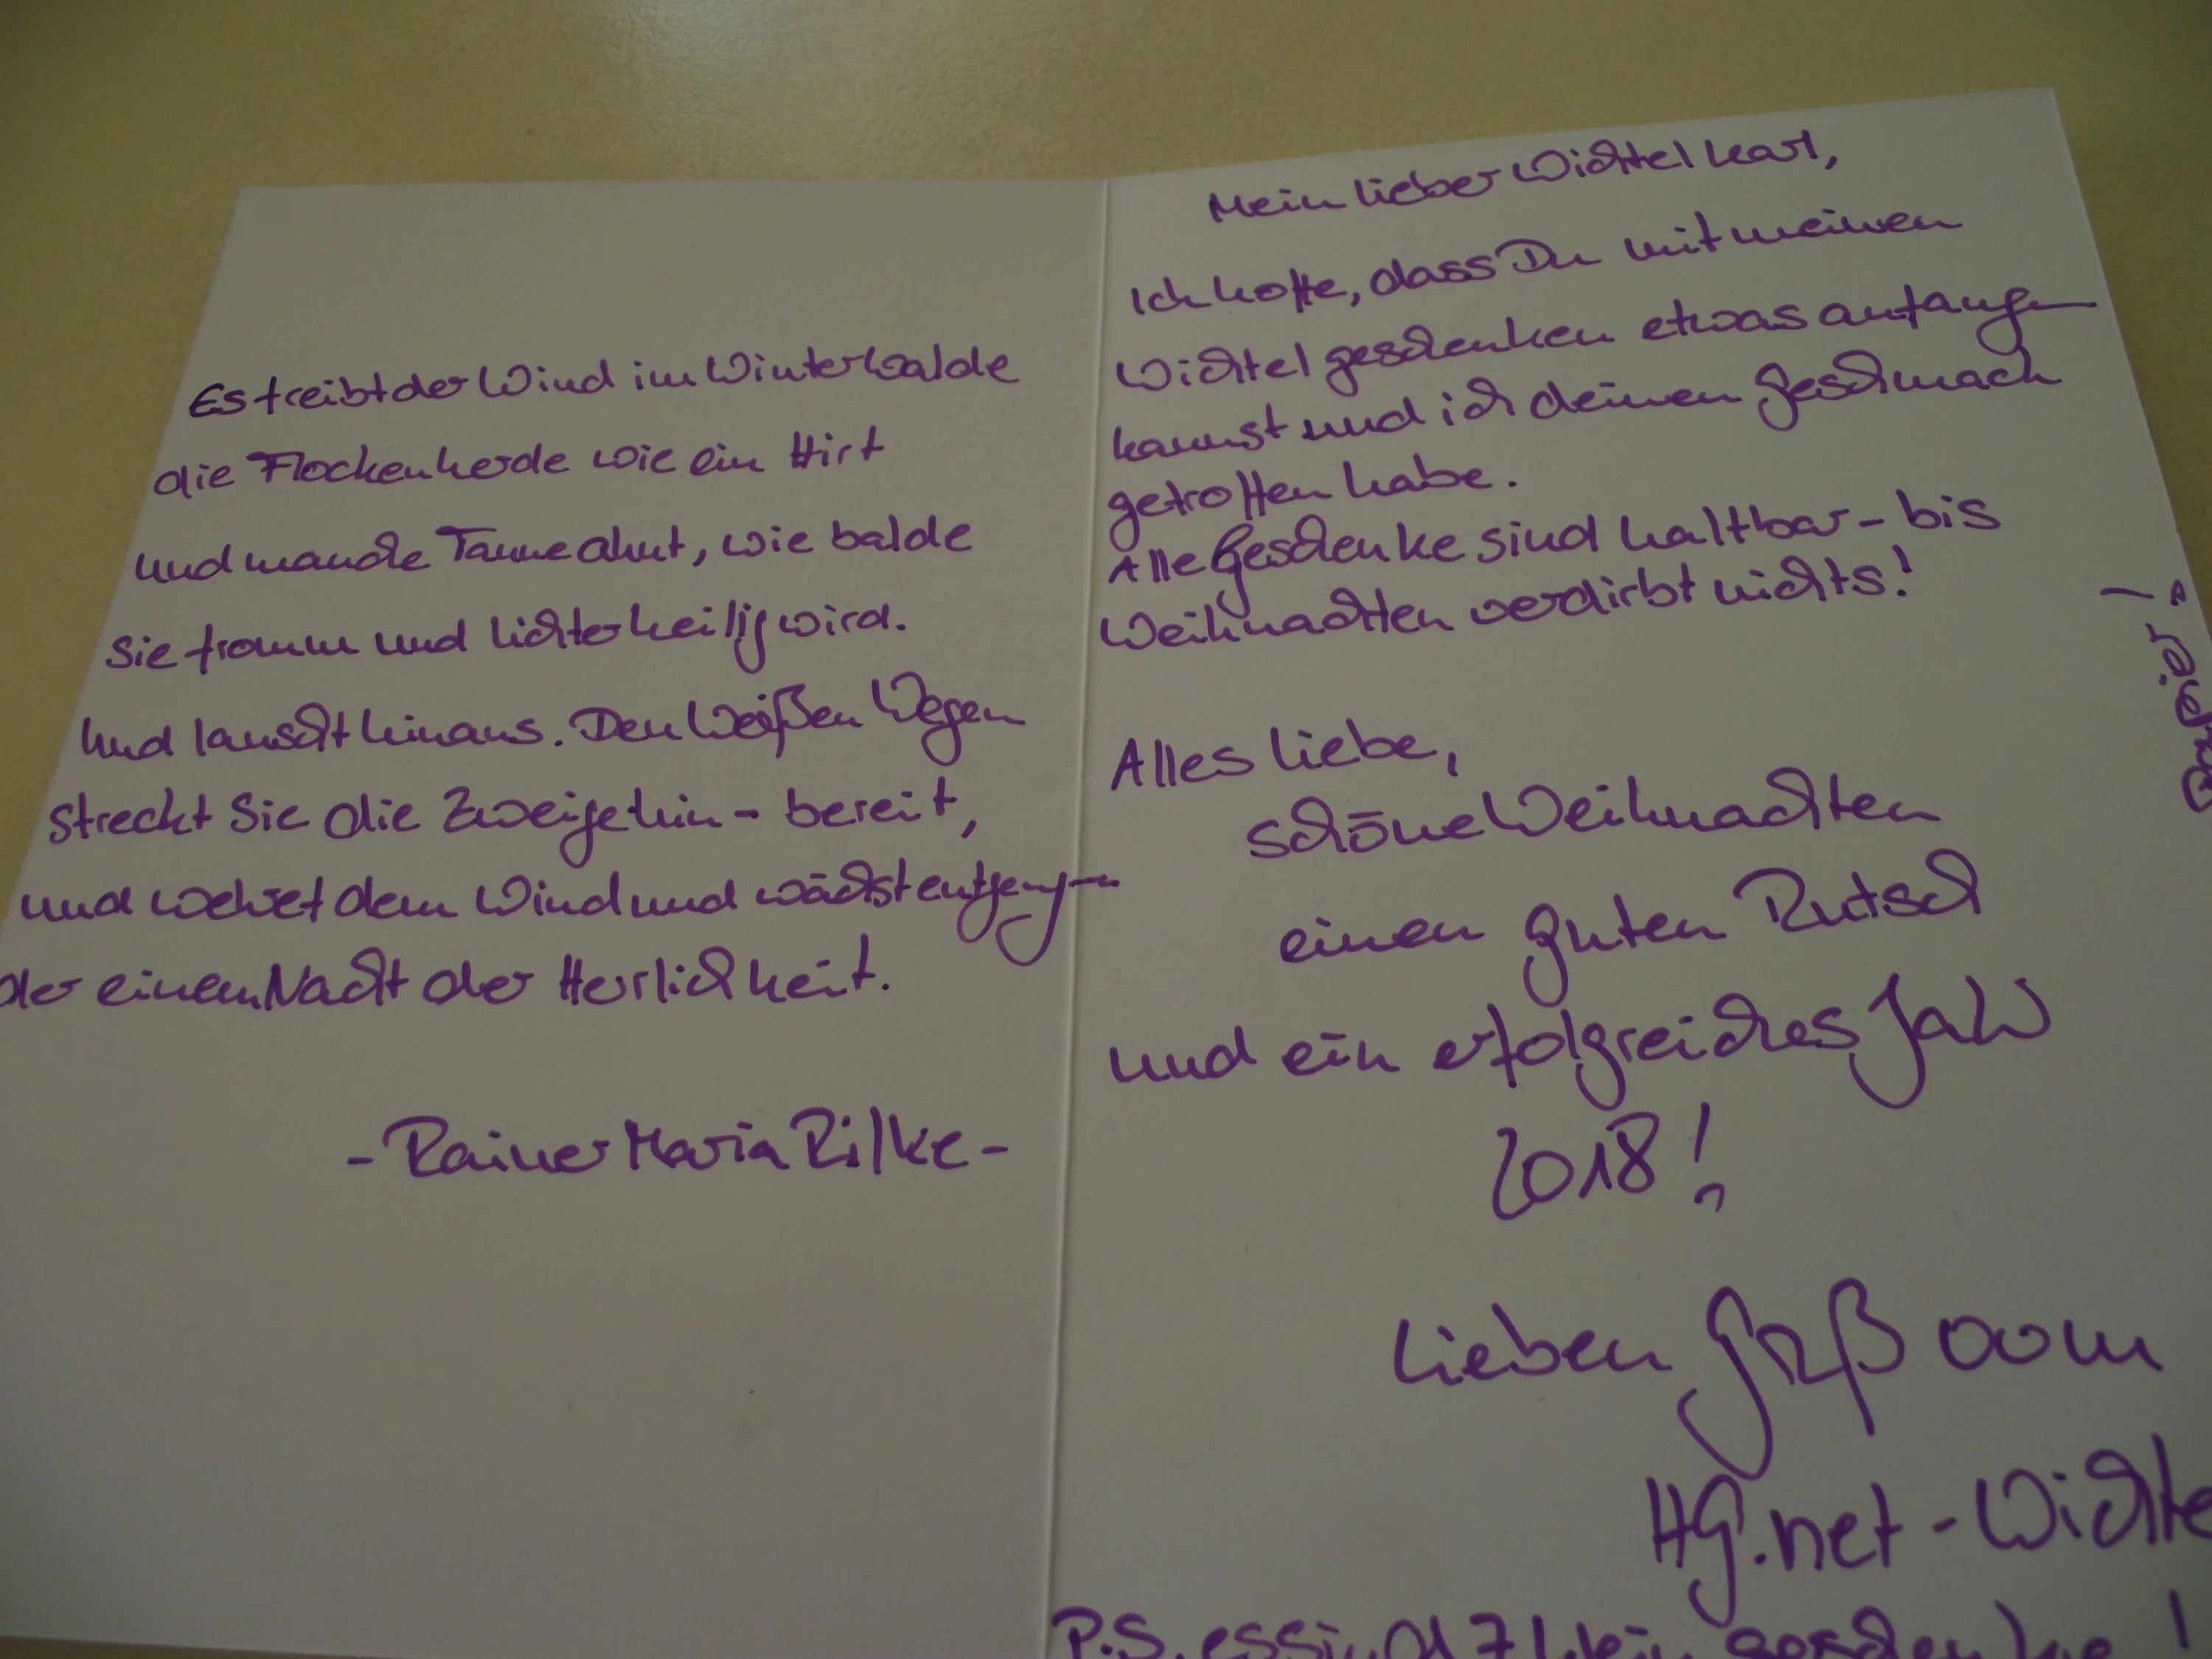 Es treibt der Wind im Winterwalde
die Flockenherde wie ein Hirt
und manche Tanne ahnt, wie balde
sie fromm und lichterheilig wird.
Und lauscht hinaus. Den Weißen Wegen
streckt Sie die Zweige hin - bereit,
und wehret dem Wind und wächst entgegen
der einen Nacht der Herrlichkeit.
- Rainer Maria Rilke -
Mein lieber Wichtel Karl,
Ich hoffe, dass Du mit meinen
Wichtelgeschenken etwas anfangen
kannst und ich deinen Geschmack
getroffen habe.
Alle Geschenke sind haltbar - bis
Weihnachten verdirbt nichts!
Alles liebe,
schöne Weihnachten
einen guten Rutsch
und ein erfolgreiches Jahr
2018!
Lieben Gruß vom
HG.net-Wichte
P.S. es sind 7 klein geschenke!